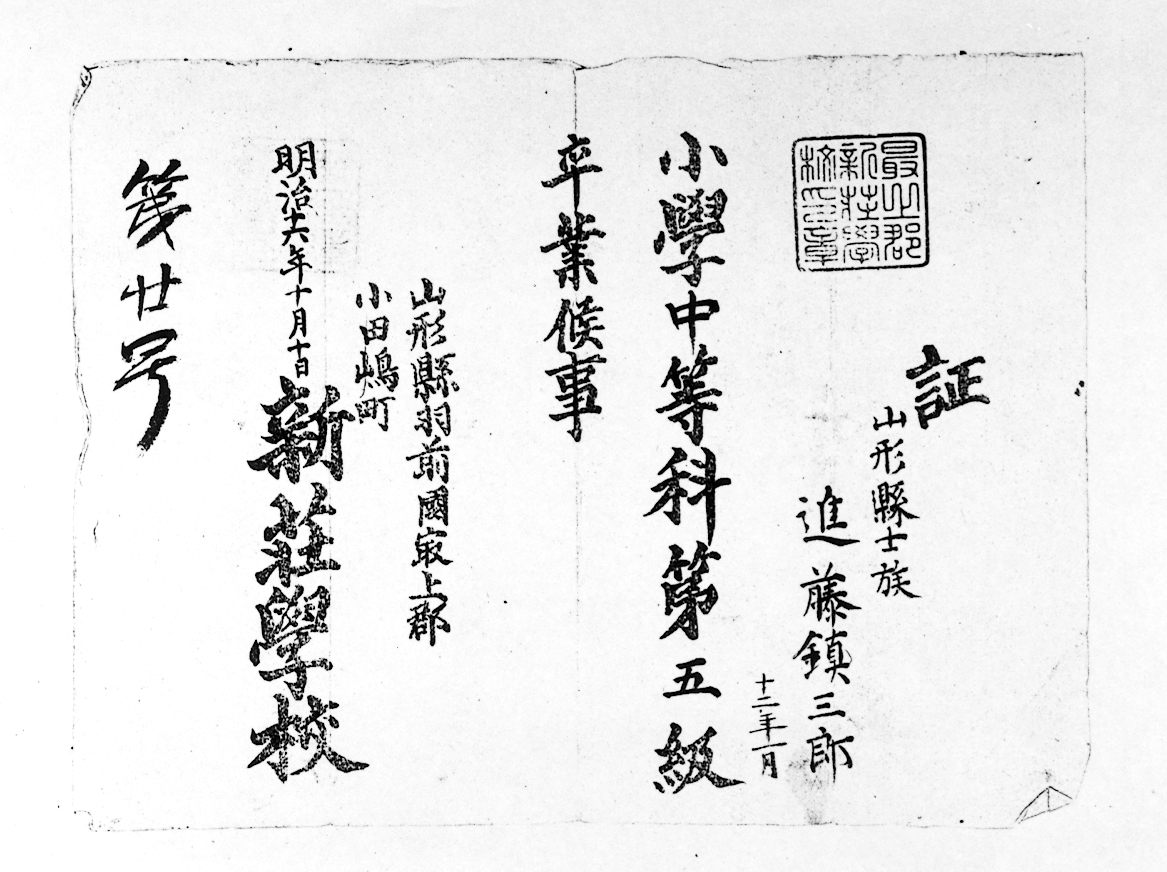 証
最上郡
新荘學
校之印章
山形縣士族
進藤鎮三郎
十二年一月
小學中等科第五級
卒業候事
山形縣羽前國最上郡
小田嶋町
明治十六年十月十日
新荘學校
第廿号